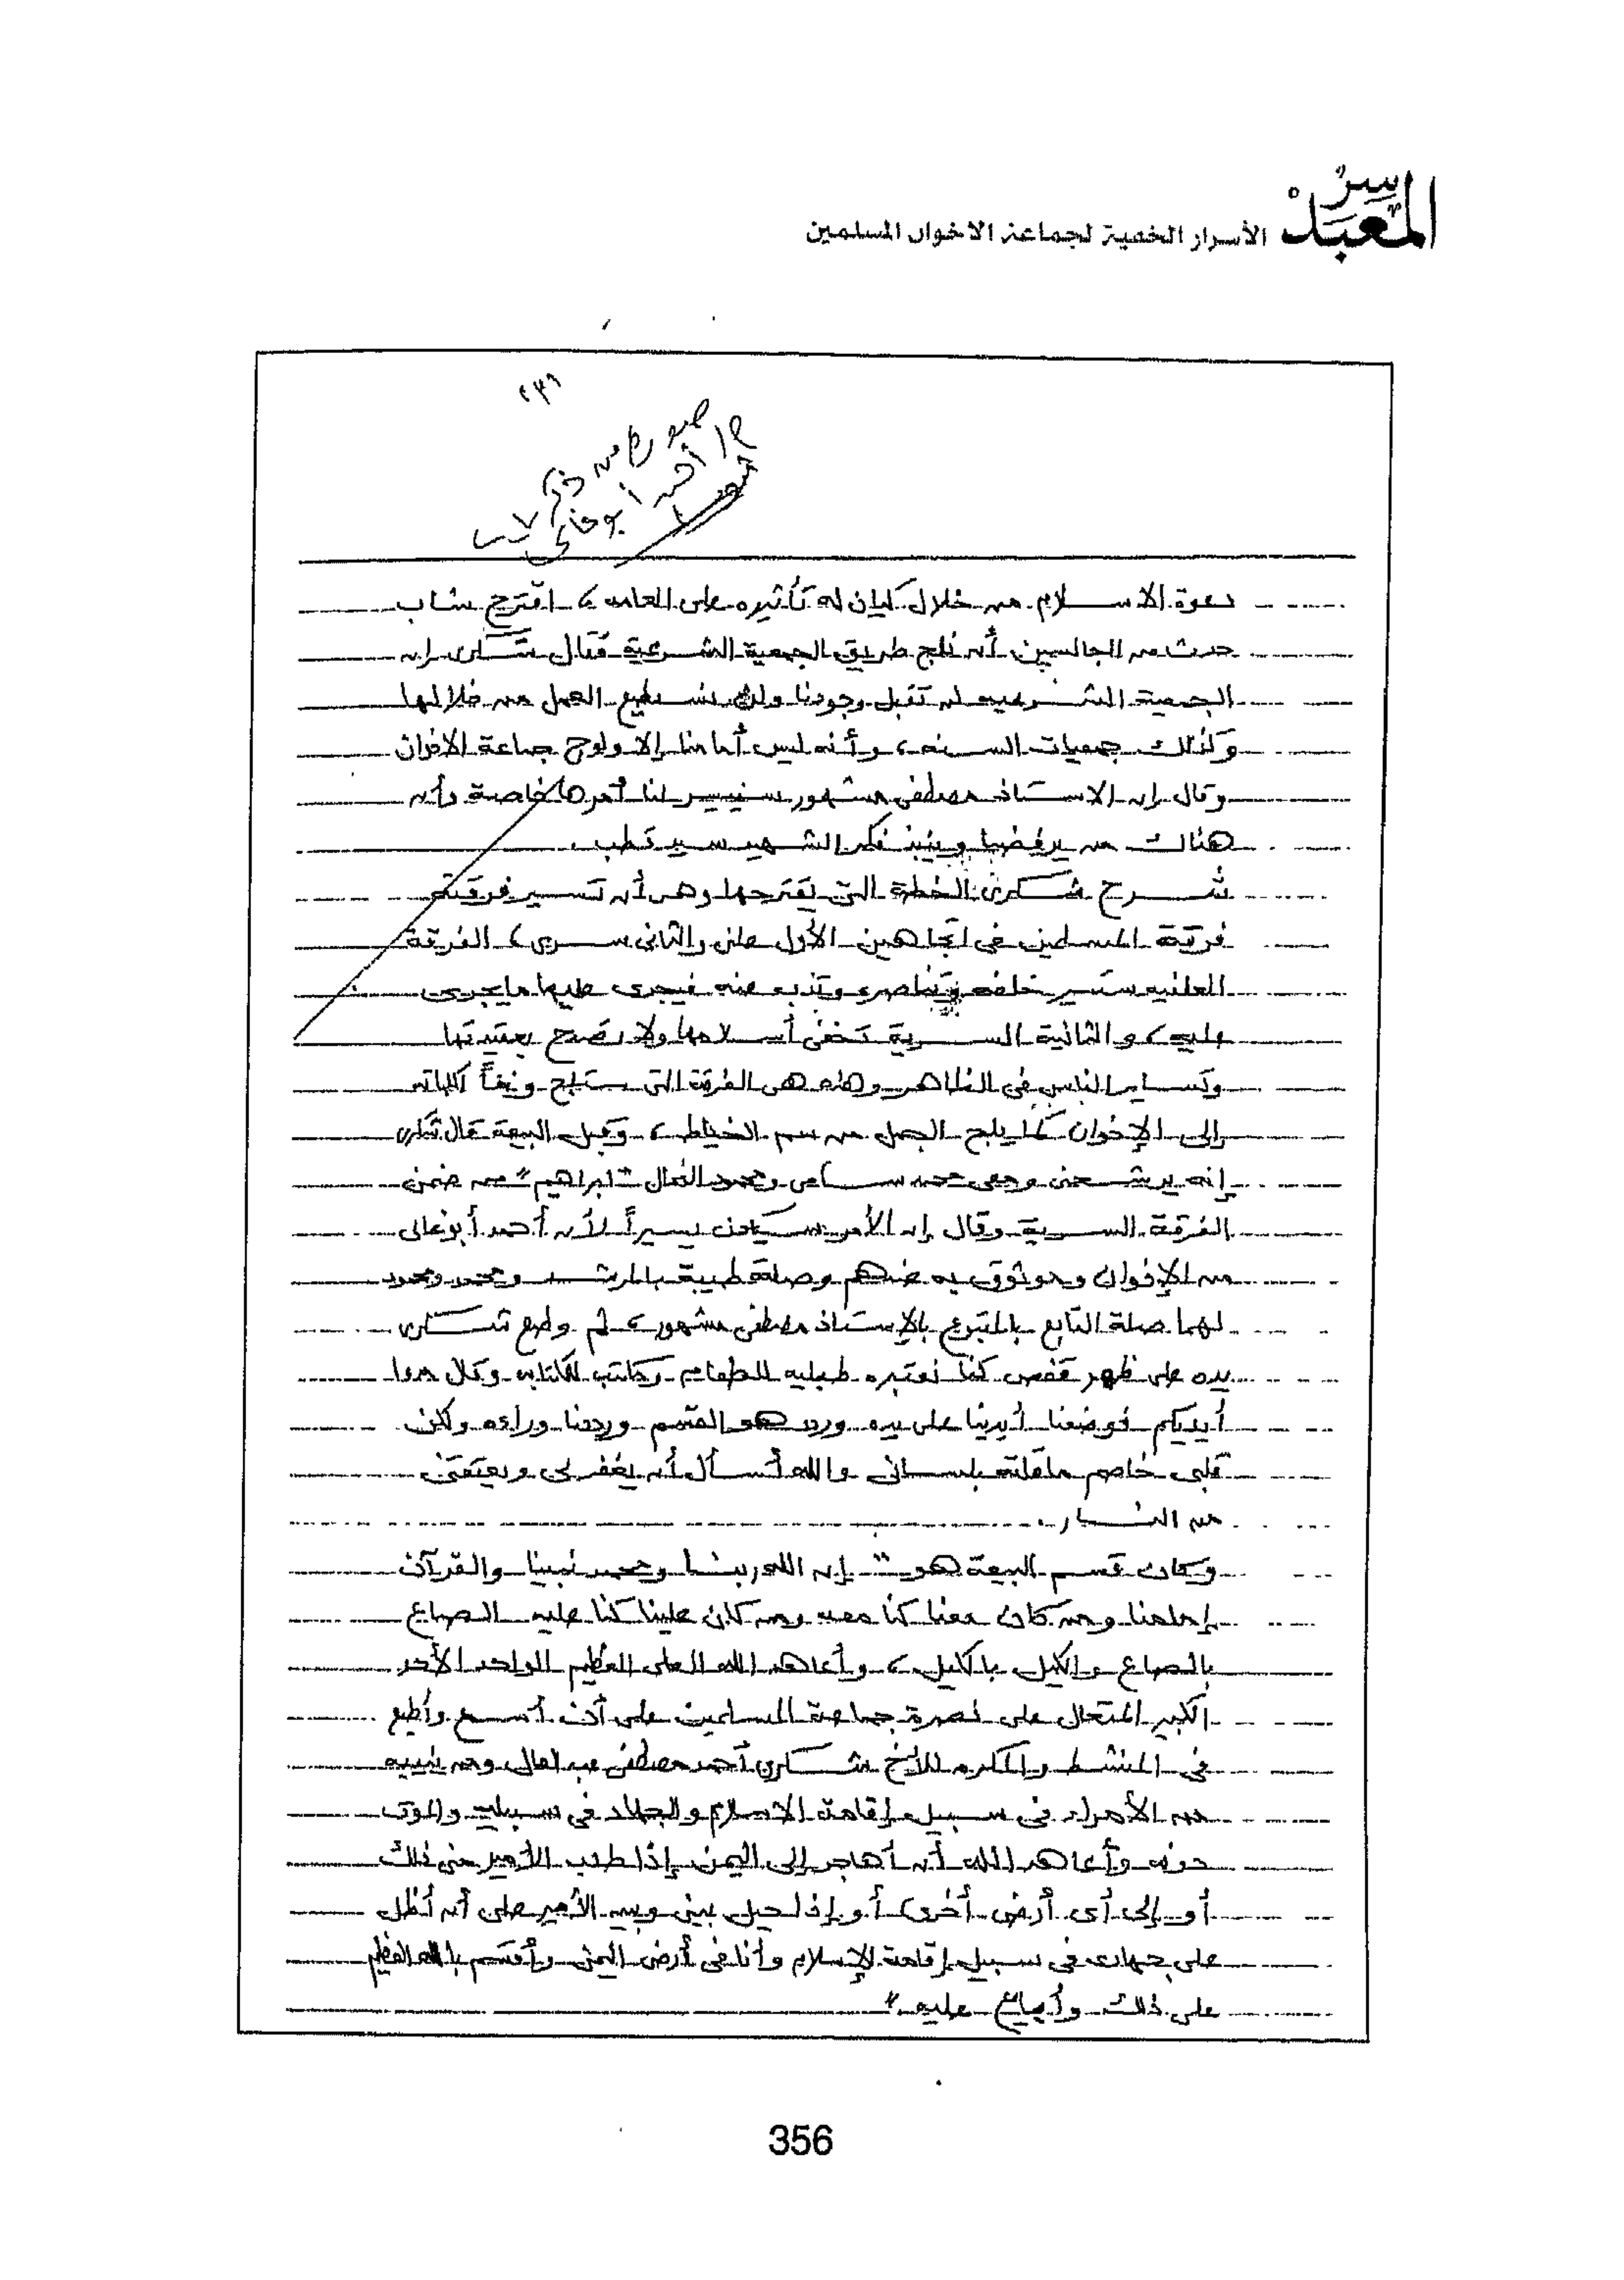 سر المعبد
الأسرار الخفية لجماعة الاخوان المسلمين
صورة من
أحمد أبو غالى
دعوة الاسلام من خلال كيان له تأثيره على العامه ، اقترح شاب
حدث من الجالسين أن نلج طريق الجمعية الشرعية فقال شكرى إن
الجمعية الشرعيه لن تقبل وجودنا ولن نستطيع العمل من خلالها
وكذلك جمعيات السنه ، وأنه ليس أمامنا إلا ولوج جماعة الاخوان
وقال إن الاستاذ مصطفى مشهور سييسر لنا أمرها خاصة وأن
هناك من يرفضها وينبذ فكر الشهيد سيد قطب .
شرح شكرى الخطة التى يقترحها وهى أن تسير فرقته
فرقة المسلمين فى اتجاهين الأول علنى والثانى سرى ، الفرقة
العلنيه ستسير خلفه وتناصره وتذب عنه فيجرى عليها ما يجرى
عليه ، والثانية السرية تخفى أسلامها ولا تصدح بعقيدتها
وتساير الناس فى الظاهر وهذه هى الفرقة التى ستلج وفقاً لكلماته
إلى الإخوان كما يلج الجمل من سم الخياط ، وقبل البيعة قال شكرى
إنه يرشحنى ومعى محمد سامى ومحمود الفعال "ابراهيم" من ضمن
الفرقة السرية وقال إن الأمر سيكون يسيراً لأن أحمد أبو غالى
من الإخوان وموثوق به عندهم وصلته طيبة بالمرشد ومحمد ومحمود
لهما صلة التابع بالمتبوع بالإستاذ مصطفى مشهور ، ثم وضع شكرى
يده على ظهر قفص كنا نعتبره طبليه للطعام ومكتب للكتابه وقال مدوا
أيديكم فوضعنا أيدينا على يده وردد هو القسم ورددنا وراءه ولكن
قلبى خاصم ما قلته بلسانى والله أسأل أن يغفر لى ويعتقنى
من النار .
وكان قسم البيعة هو " إن الله ربنا ومحمد نبينا والقرآن
إمامنا ومن كان معنا كنا معه ومن كان علينا كنا عليه الصاع
بالصاع والكيل بالكيل ، وأعاهد الله العلى العظيم الواحد الأحد
الكبير المتعال على نصرة جماعة المسلمين على أن أسمع وأطيع
فى المنشط والمكره للأخ شكرى أحمد مصطفى عبد العال ومن ينيبه
من الأمراء فى سبيل إقامة الاسلام والجهاد فى سبيله والموت
دونه وأعاهد الله أن أهاجر إلى اليمن إذا طلب الأمير منى ذلك
أو إلى أى أرض أخرى أو إذا حيل بينى وبين الأمير على أن أظل
على جهادى فى سبيل إقامة الإسلام وأنا فى أرض اليمن وأقسم بالله العظيم
على ذلك وأبايع عليه "
356